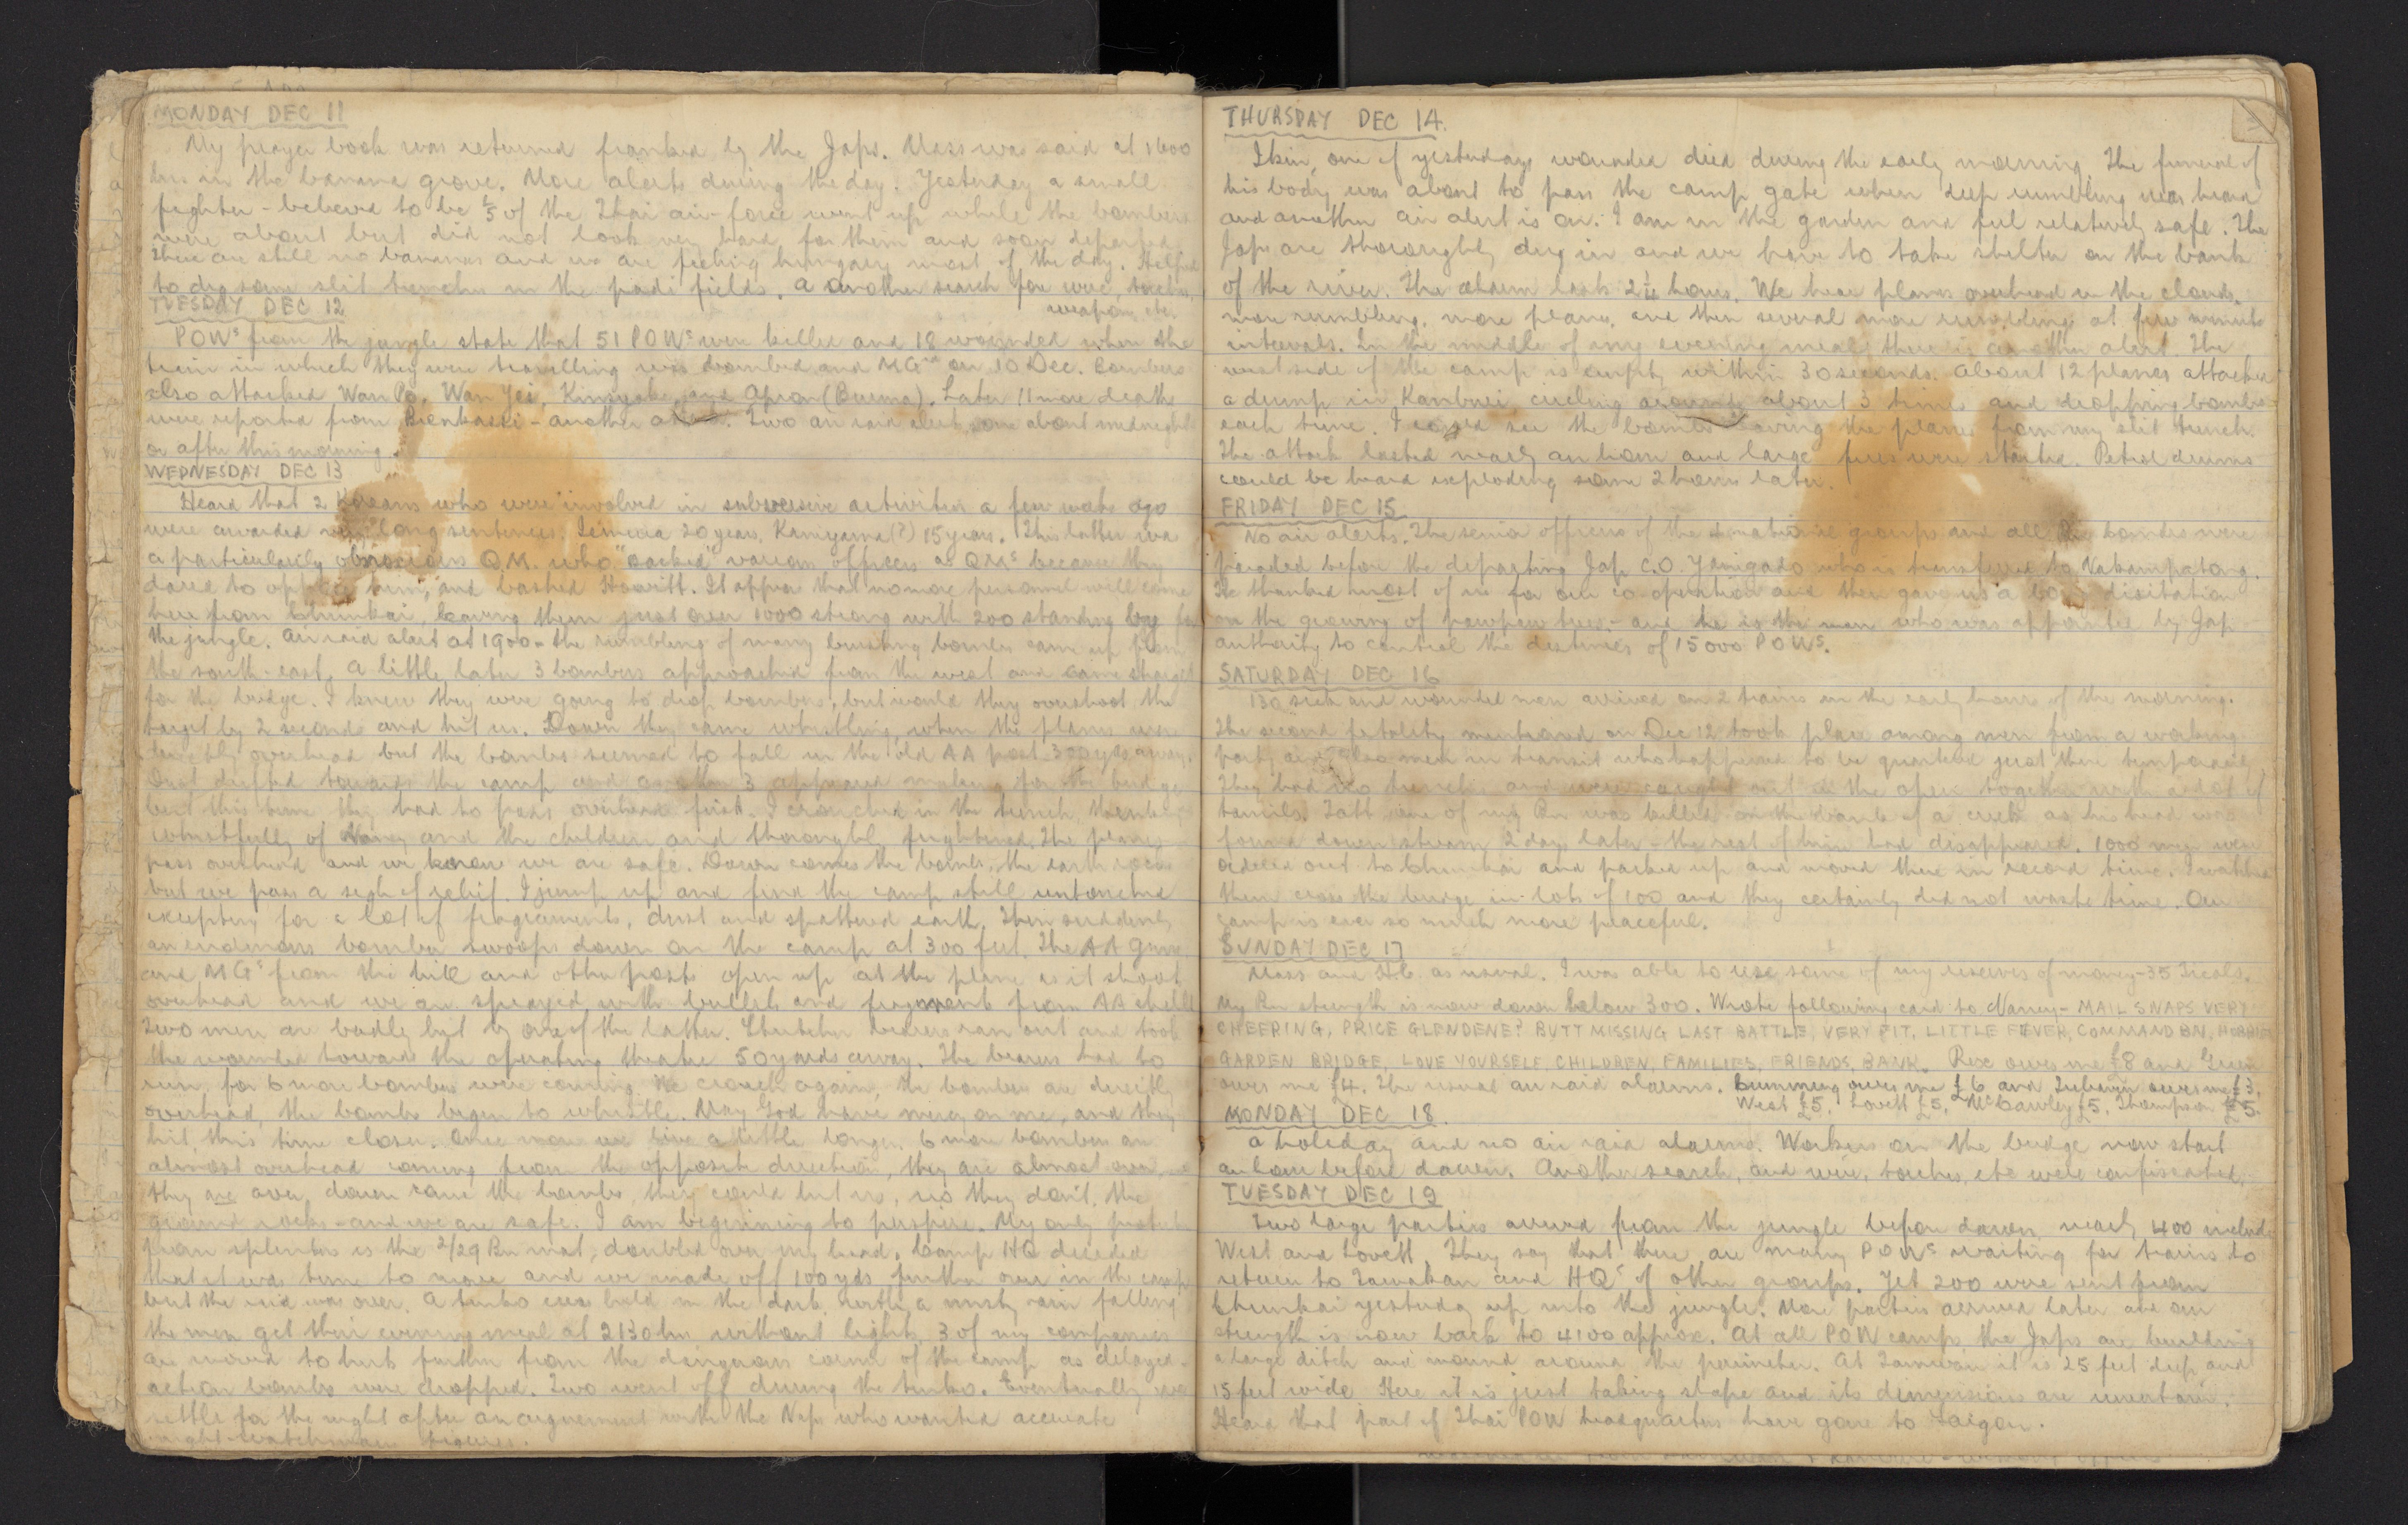 MONDAY DEC 11
My prayer book was returned franked by the Japs. Mass was said at 1600
hrs in the banana grove. More alerts during the day. Yesterday a small
fighter - believed to be 1/5 of the Thai air-force went up while the bombers
were about but did not look very hard for them and soon departed.
There are still no bananas and we are feeling hungary most of the day. Helped
to dig some slit trenches in the padi fields. A another search for wire, torches,
weapons etc.
TUESDAY DEC 12
POWs from the jungle state that 51 POWs were killed and 18 wounded when the
train in which they were travelling was bombed and MGed on 10 Dec. Bombers
also attacked Wan Po, Wan Yei, and (Burma). Later 11 more deaths
were reported from - another Two air raid alerts, one about midnight
or after this morning.
WEDNESDAY DEC 13
Heard that 2 Koreans who were involved in subversive activities a few weeks ago
were awarded very long sentences. 20 years, Kamiyama(?) 15 years. This latter was
a particularily obnoxious Q.M. who "sacked" various officers as QMs because they
dared to oppose him, and bashed Howitt. It appears that no more personnel will come
here from Chunkai, leaving them just over 1000 strong with 200 standing bye for
the jungle. Air raid alert at 1900 - the rumbling of many bursting bombs came up from
the south-east, a little later 3 bombers approached from the west and came straight
for the bridge. I knew they were going to drop bombs, but would they overshoot the
target by 2 seconds and hit us. Down they came whistling, when the planes were
directly overhead but the bombs seemed to fall in the old AA post 300 yds away.
Dust drifted towards the camp and another 3 appeared making for the bridge
but this time they had to pass overhead first. I crouched in the trench, thinking
whistfully of Nancy and the children and thoroughly frightened. The planes
pass overhead and we know we are safe. Down comes the bombs, the earth rocks
but we pass a sigh of relief. I jump up and find the camp still untouched
excepting for a lot of fragements, dust and spattered earth. Then suddenly
an enormous bomber swoops down on the camp at 300 feet. The AA guns
and MGs from the hill and other posts open up at the plane as it shoots
overhead and we are sprayed with bullets and fragments from AA shells
Two men are badly hit by one of the latter. Stretcher bearers ran out and took
the wounded towards the operating theatre 50 yards away. The bearers had to
run, for 6 more bombers were coming. We crouch again, the bombers are directly
overhead, the bombs begin to whistle. May God have mercy on me, and they
hit, this time closer. Once more we live a little longer. 6 more bombers are
almost overhead coming from the opposite direction, they are almost over,
they are over, down came the bombs, they could hit us, no they don't, the
ground rocks - and we are safe. I am beginning to perspire. My only protection
from splinters is the 2/29 Bn mat, doubled over my head. Camp HQ decided
that it was time to move and we made off 100 yds further over in the camp
but the raid was over. A tenko was held in the dark. With a misty rain falling
the men get their evening meal at 2130 hrs without lights. 3 of my companies
are moved to huts further from the dangerous corner of the camp as delayed-
action bombs were dropped. Two went off during the tenko. Eventually we
settle for the night after an arguement with the Nips who wanted accurate
night-watchman figures.
THURSDAY DEC 14.
one of yesterdays wounded died during the early morning. The funeral of
his body was about to pass the camp gate when deep rumbling was heard
and another air alert is on. I am in the garden and feel relatively safe. The
Japs are thoroughly dug in and we have to take shelter on the bank
of the river. The alarm lasts 2 1/4 hours. We hear planes overhead in the clouds,
more rumbling, more planes, and then several more rumblings at few minute
intervals. In the middle of my evening meal there is another alert. The
west side of the camp is empty within 30 seconds. About 12 planes attacked
a dump in Kanburi circling around about 3 times and dropping bombs
each time. I could see the bombs leaving the planes from my slit trench.
The attack lasted nearly an hour and large fires were started. Petrol drums
could be heard exploding some 2 hours later.
FRIDAY DEC 15
No air alerts. The senior officers of the 4 national groups and all Bn comdrs were
paraded before the departing Jap C.O. Yanigado who is transferred to Nakompatong.
He thanked most of us for our co-operation and then gave us a long disitation
on the growing of pawpaw trees - and he is the man who was appointed by Jap
authority to control the destinies of 15000 POWs.
SATURDAY DEC 16
130 sick and wounded men arrived on 2 trains in the early hours of the morning.
The second fatality mentioned on Dec 12 took place among men from a working
party and also men in transit who happened to be quartered just there temporarily.
They had no trenches and were caught out in the open together with a lot of
tamils. Tatt, one of my Bn was killed on the bank of a creek as his head was
found down stream 2 days later - the rest of him had disappeared. 1000 men were
ordered out to Chunkai and packed up and moved there in record time. I watched
them cross the bridge in lots of 100 and they certainly did not waste time. Our
camp is ever so much more peaceful.
SUNDAY DEC 17
Mass and H.C. as usual. I was able to use some of my reserves of money - 35 Ticals.
My Bn strength is now down below 300. Wrote following card to Nancy - MAIL SNAPS VERY
CHEERING, PRICE GLENDENE? BUTT MISSING LAST BATTLE, VERY FIT, LITTLE FEVER, COMMAND BN, HOBBIES
GARDEN BRIDGE, LOVE YOURSELF CHILDREN, FAMILIES, FRIENDS, BANK. Rex owes me £8 and Green
owes me £4. The usual air raid alarms. Cumming owes me £6 and owes me £3,
West £5, Lovett £5, McCawley £5, Thompson £5.
MONDAY DEC 18.
A holiday and no air raid alarms. Workers on the bridge now start
an hour before dawn. Another search, and wire, torches, etc were confiscated.
TUESDAY DEC 19
Two large parties arrived from the jungle before dawn, nearly 400 include
West and Lovett. They say that there are many POWs waiting for trains to
return to Tamarkan and HQs of other groups. Yet 200 were sent from
Chunkai yesterday up into the jungle. More parties arrived later and our
strength is now back to 4100 approx. At all POW camps the Japs are building
a large ditch and mound around the perimeter. At Tamuan it is 25 feet deep and
15 feet wide. Here it is just taking shape and its dimensions are uncertain.
Heard that part of Thai POW headquarters have gone to Saigon.